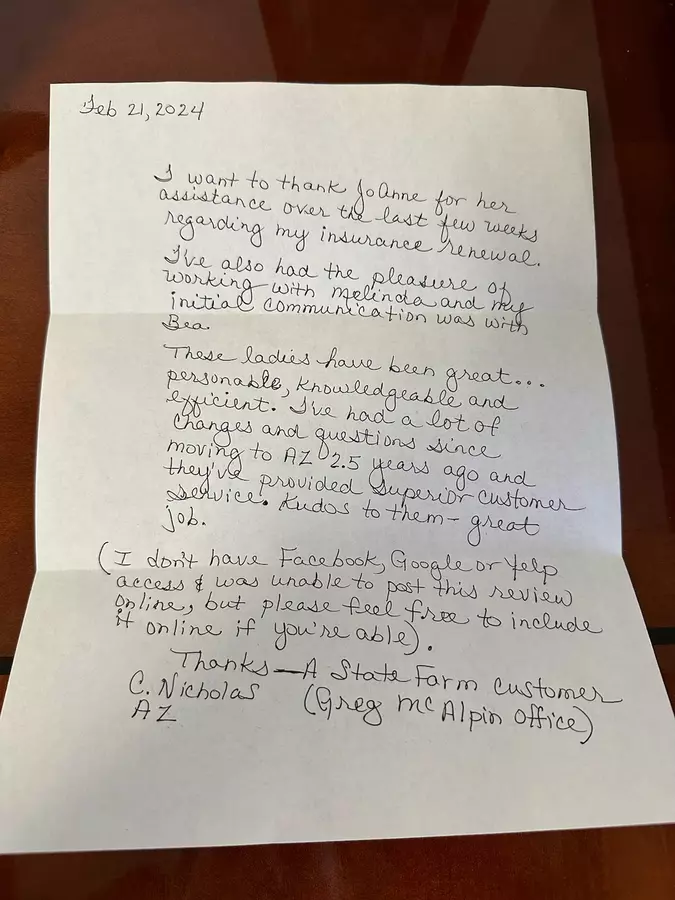 Feb 21, 2024
I want to thank JoAnne for her
assistance over the last few weeks
regarding my insurance renewal.
I've also had the pleasure of
working with Melinda and my
initial communication was with
Bea.
These ladies have been great...
personable, knowledgeable and
efficient. I've had a lot of
changes and questions since
moving to AZ 2.5 years ago and
they've provided superior customer
service. Kudos to them - great
job.
(I don't have Facebook, Google or Yelp
access & was unable to post this review
online, but please feel free to include
it online if you're able).
Thanks — A State Farm customer
C. Nicholas (Greg McAlpin Office)
AZ